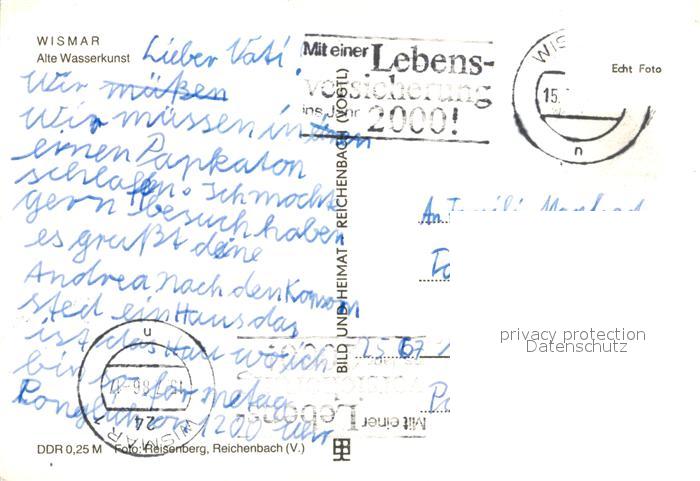 WISMAR
Alte Wasserkunst
Echt Foto
Lieber Vati!
Wir müßen
Wir müssen in
einen Papkaton
schlafen. Ich möchte
gern besuch haben
es grüßt deine
Andrea nach den Konsom
sted ein Haus das
ist das Hau wo ich
bin
1200 Uhr
Mit einer Lebens-
versicherung
ins Jahr 2000!
WIS
15.
An Familie Manfred
2567
BILD UND HEIMAT REICHENBACH (VOGTL)
privacy protection
Datenschutz
WISMAR
24
Mit einer
Lebens-
DDR 0,25 M Foto: Reisenberg, Reichenbach (V.)